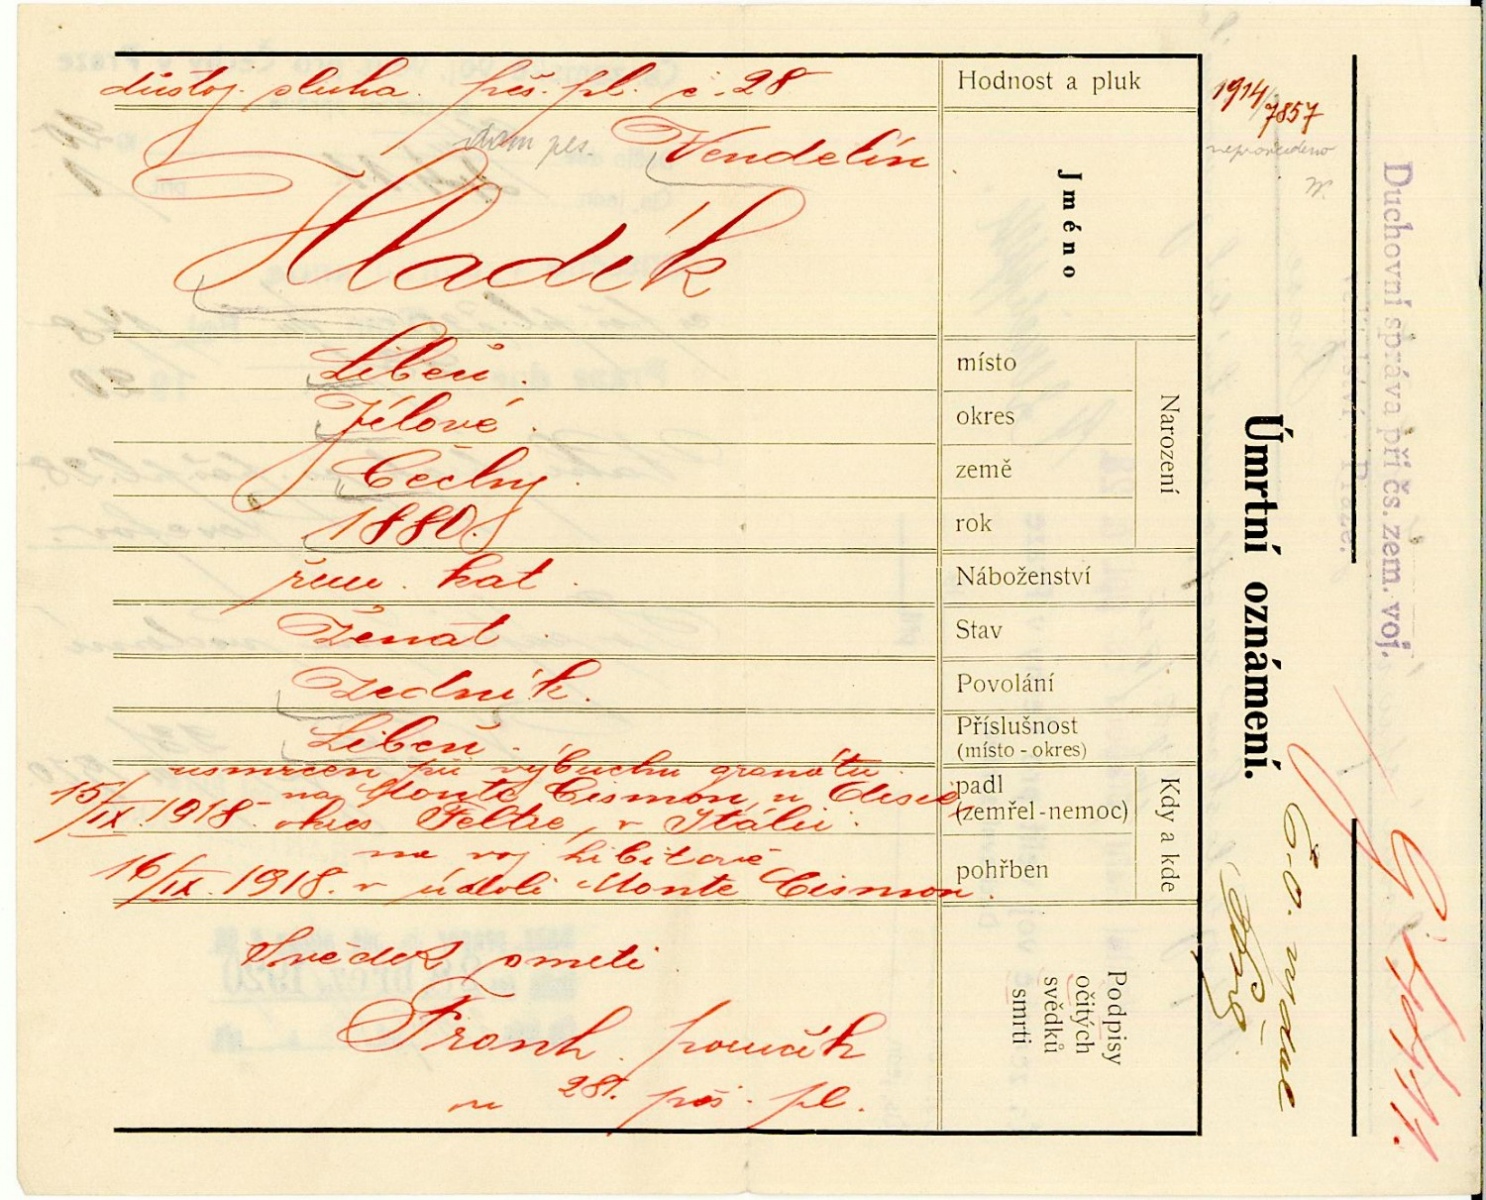 Duchovní správa při čs. zem. voj.
Praze.
Úmrtní oznámení.
1914/7857
neprovedeno
Hodnost a pluk
důstoj. sluha. pěš. pl. č. 28
Jméno
Vendelín
Hladík
Narození
místo
Libeň.
okres
Jílové.
země
Čechy.
rok
1880.
Náboženství
řím. kat.
Stav
Ženat
Povolání
Zedník.
Příslušnost
(místo - okres)
Libeň.
Kdy a kde
padl
(zemřel - nemoc)
usmrcen při výbuchu granátu.
15/IX. 1918 na Monte Cismon u
okres Feltre, v Itálii.
pohřben
na voj. hřbitově
16/IX. 1918. v údolí Monte Cismon.
Podpisy
očitých
svědků
smrti
Svědek smrti
Frank.
u 28. pěš. pl.